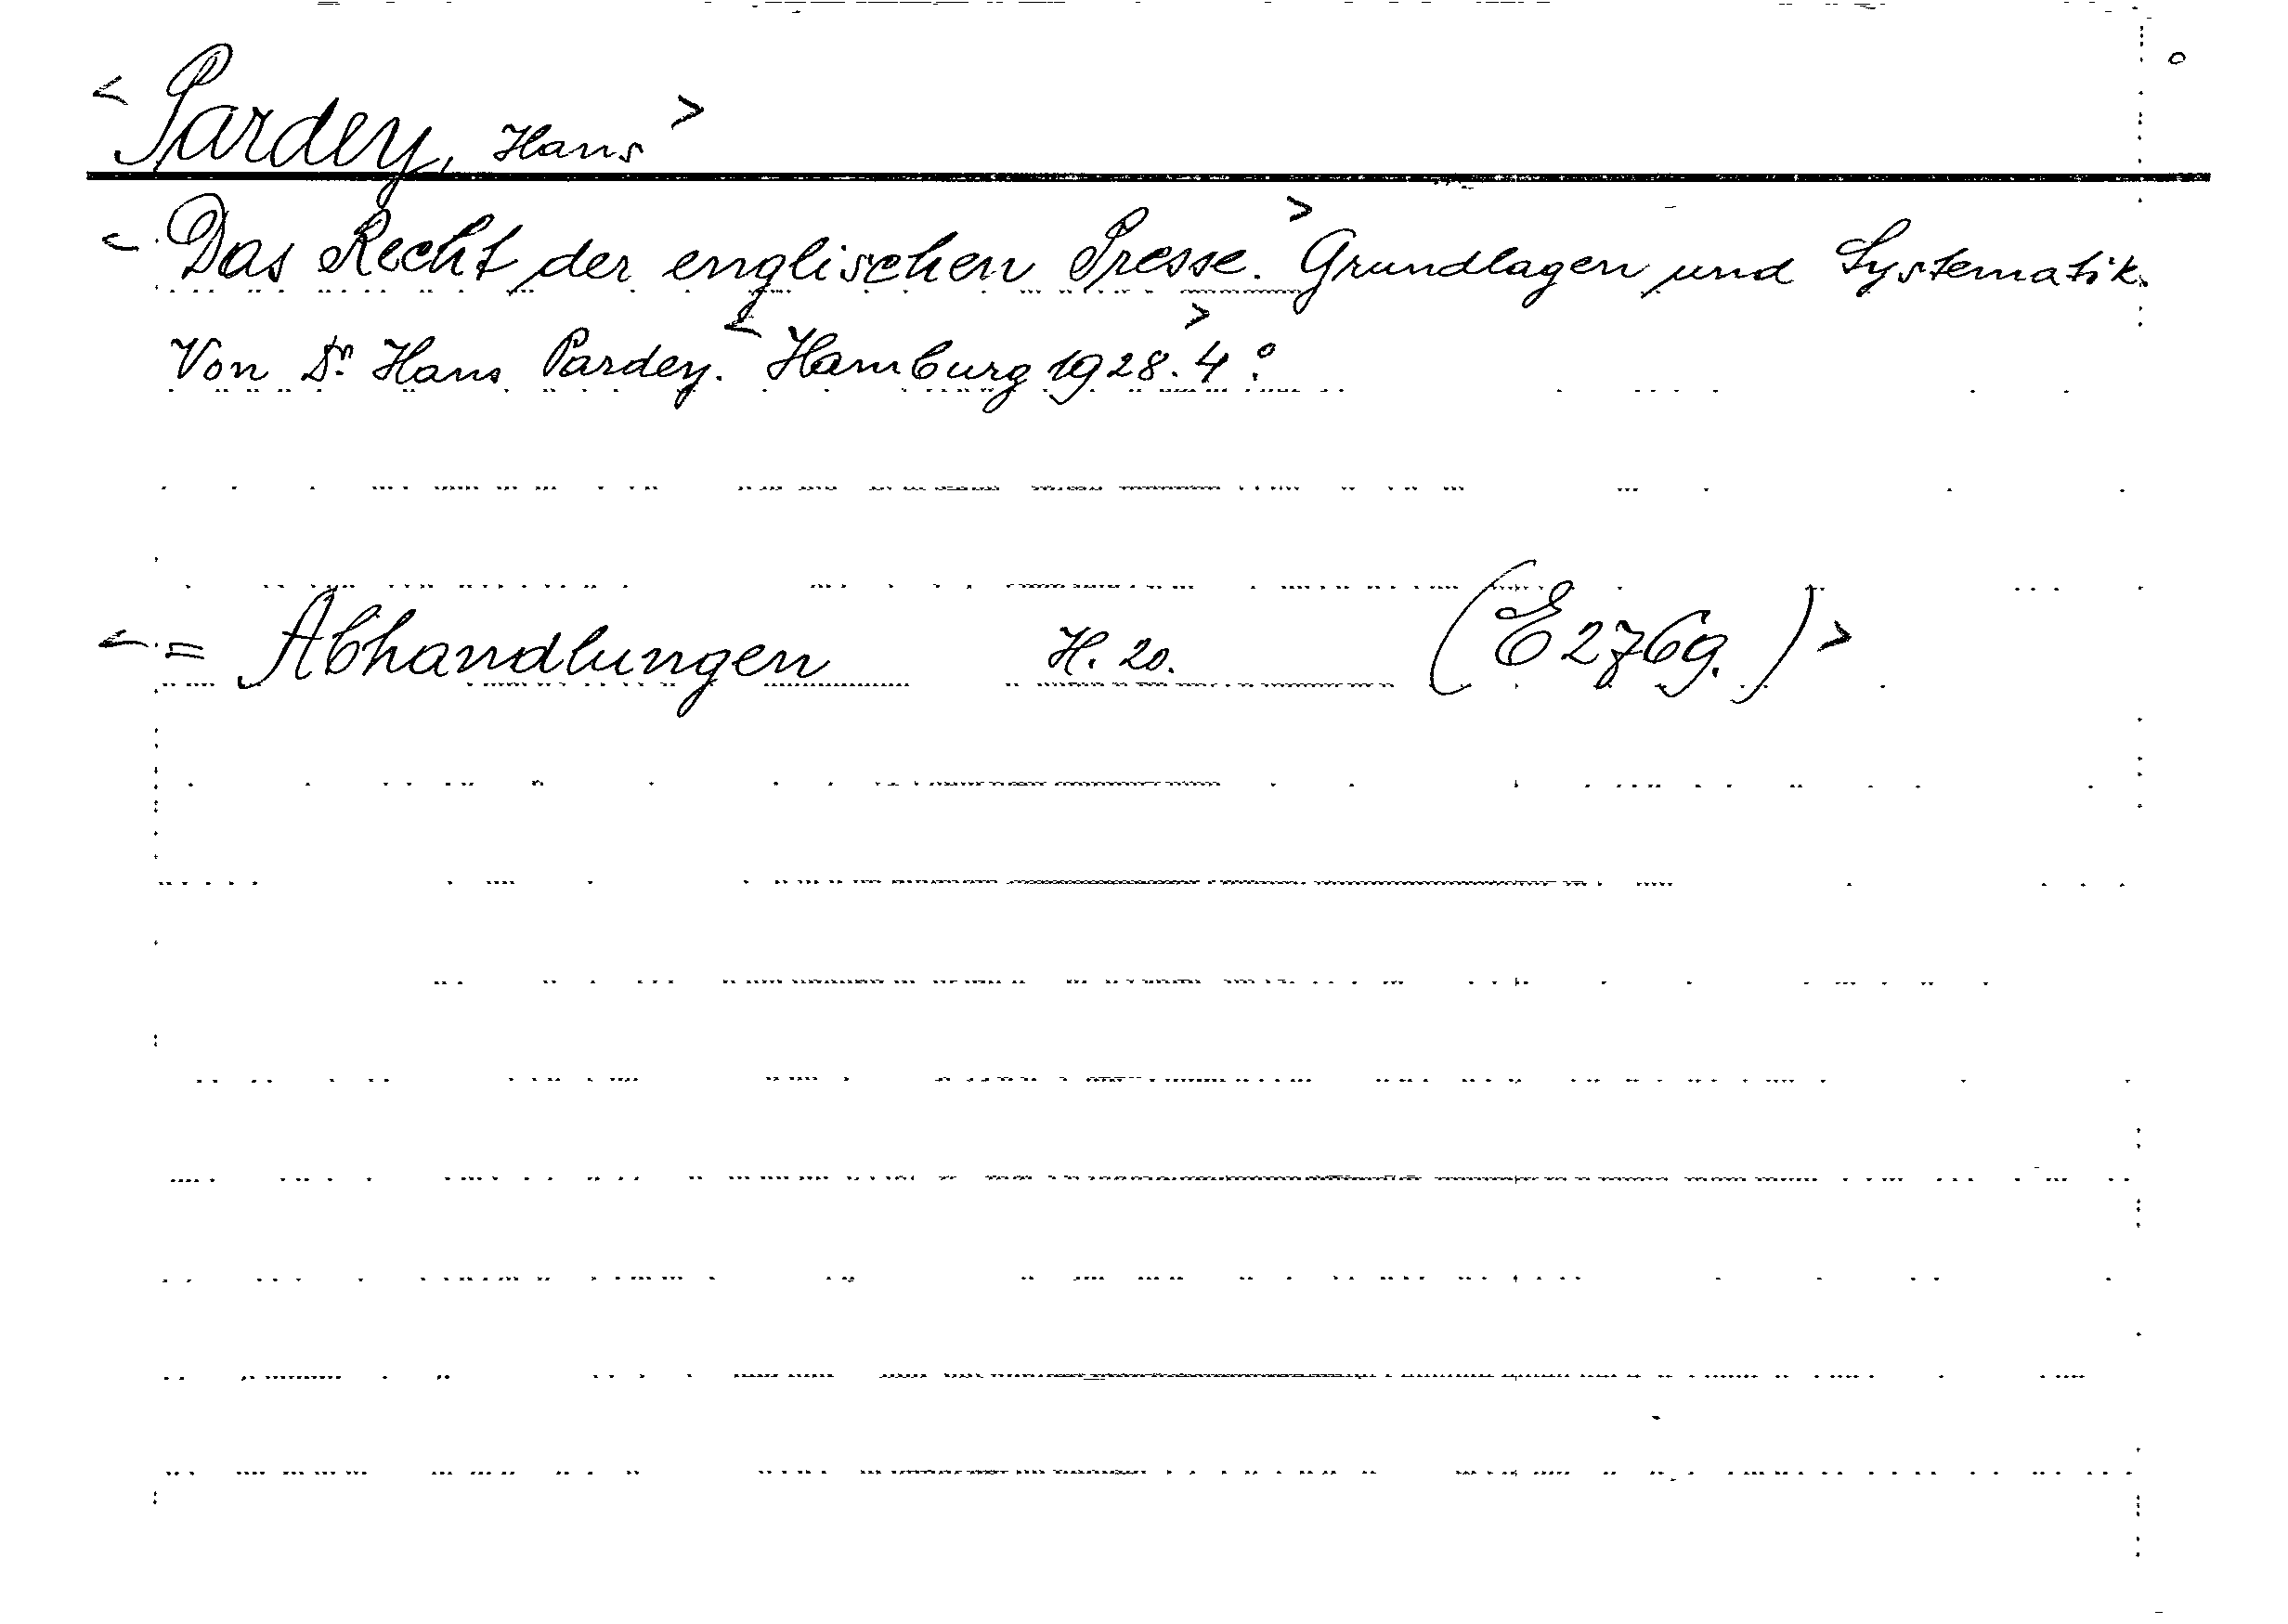 < Pardey, Hans >
< Das Recht der englischen Presse. > Grundlagen und Systematik.
Von Dr. Hans Pardey. < Hamburg 1928. > 4°.
< = Abhandlungen H. 20. (E 2769.) >